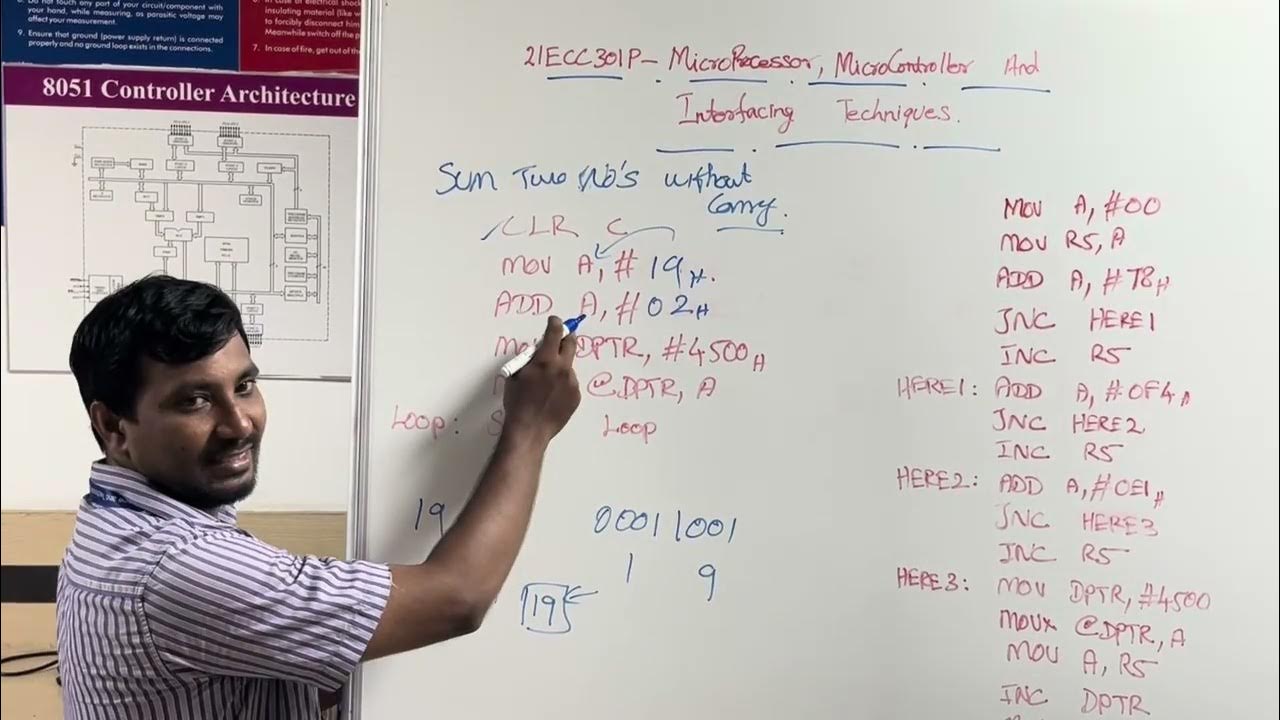 8. Do not touch any part of your circuit/component with
your hand, while measuring, as parasitic voltage may
affect your measurement.
9. Ensure that ground (power supply return) is connected
properly and no ground loop exists in the connections.
insulating material (like w
to forcibly disconnect him
Meanwhile switch off the
7. In case of fire, get out of the
8051 Controller Architecture
21ECC301P- MicroProcessor, MicroController And
Interfacing Techniques.
Sum Two No's without
Carry.
CLR C
MOV A, #19H.
ADD A, #02H
DPTR, #4500H
@DPTR, A
Loop: Loop
19 00011001
1 9
19
MOV A, #00
MOV R5, A
ADD A, #78H
JNC HERE1
INC R5
HERE1: ADD A, #0F4H
JNC HERE2
INC R5
HERE2: ADD A, #0E1H
JNC HERE3
INC R5
HERE3: MOV DPTR, #4500
MOVX @DPTR, A
MOV A, R5
INC DPTR